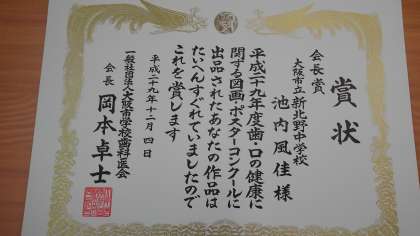 賞状
会長賞
大阪市立新北野中学校
池内風佳様
平成二十九年度歯・口の健康に
関する図画・ポスターコンクールに
出品されたあなたの作品は
たいへんすぐれていましたので
これを賞します
平成二十九年十二月四日
一般社団法人大阪市学校歯科医会
会長 岡本卓士